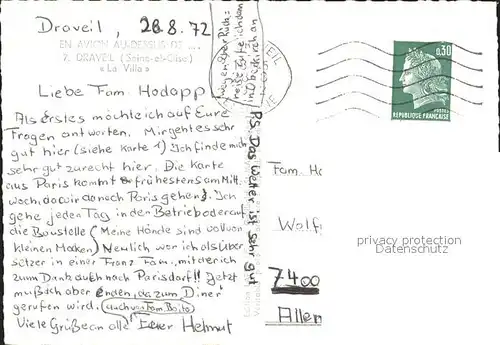 Draveil, 28.8.72
EN AVION AU-DESSUS DE ...
7. DRAVEIL (Seine-et-Oise)
« La Ville »
Liebe Fam. Hodapp
Als erstes möchte ich auf Eure
Fragen antworten. Mir geht es sehr
gut hier (siehe Karte 1) Ich finde mich
sehr gut zurecht hier. Die Karte
aus Paris kommt frühestens am Mitt
woch, da wir danach Paris gehen. Ich
gehe jeden Tag in den Betrieb oder auf
die Baustelle (Meine Hände sind voll von
kleinen Macken) Neulich war ich als Über
setzer in einer Franz. Fam., mit der ich
zum Dank auch nach Paris darf!! Jetzt
muß ich aber enden, da zum "Diner"
gerufen wird. (auch von Fam. Boito)
Viele Grüße an alle Euer Helmut
PS. Das Wetter ist sehr gut
0,30
REPUBLIQUE FRANÇAISE
POSTES
Fam. Ho
Wolf
7400
Allem
privacy protection
Datenschutz